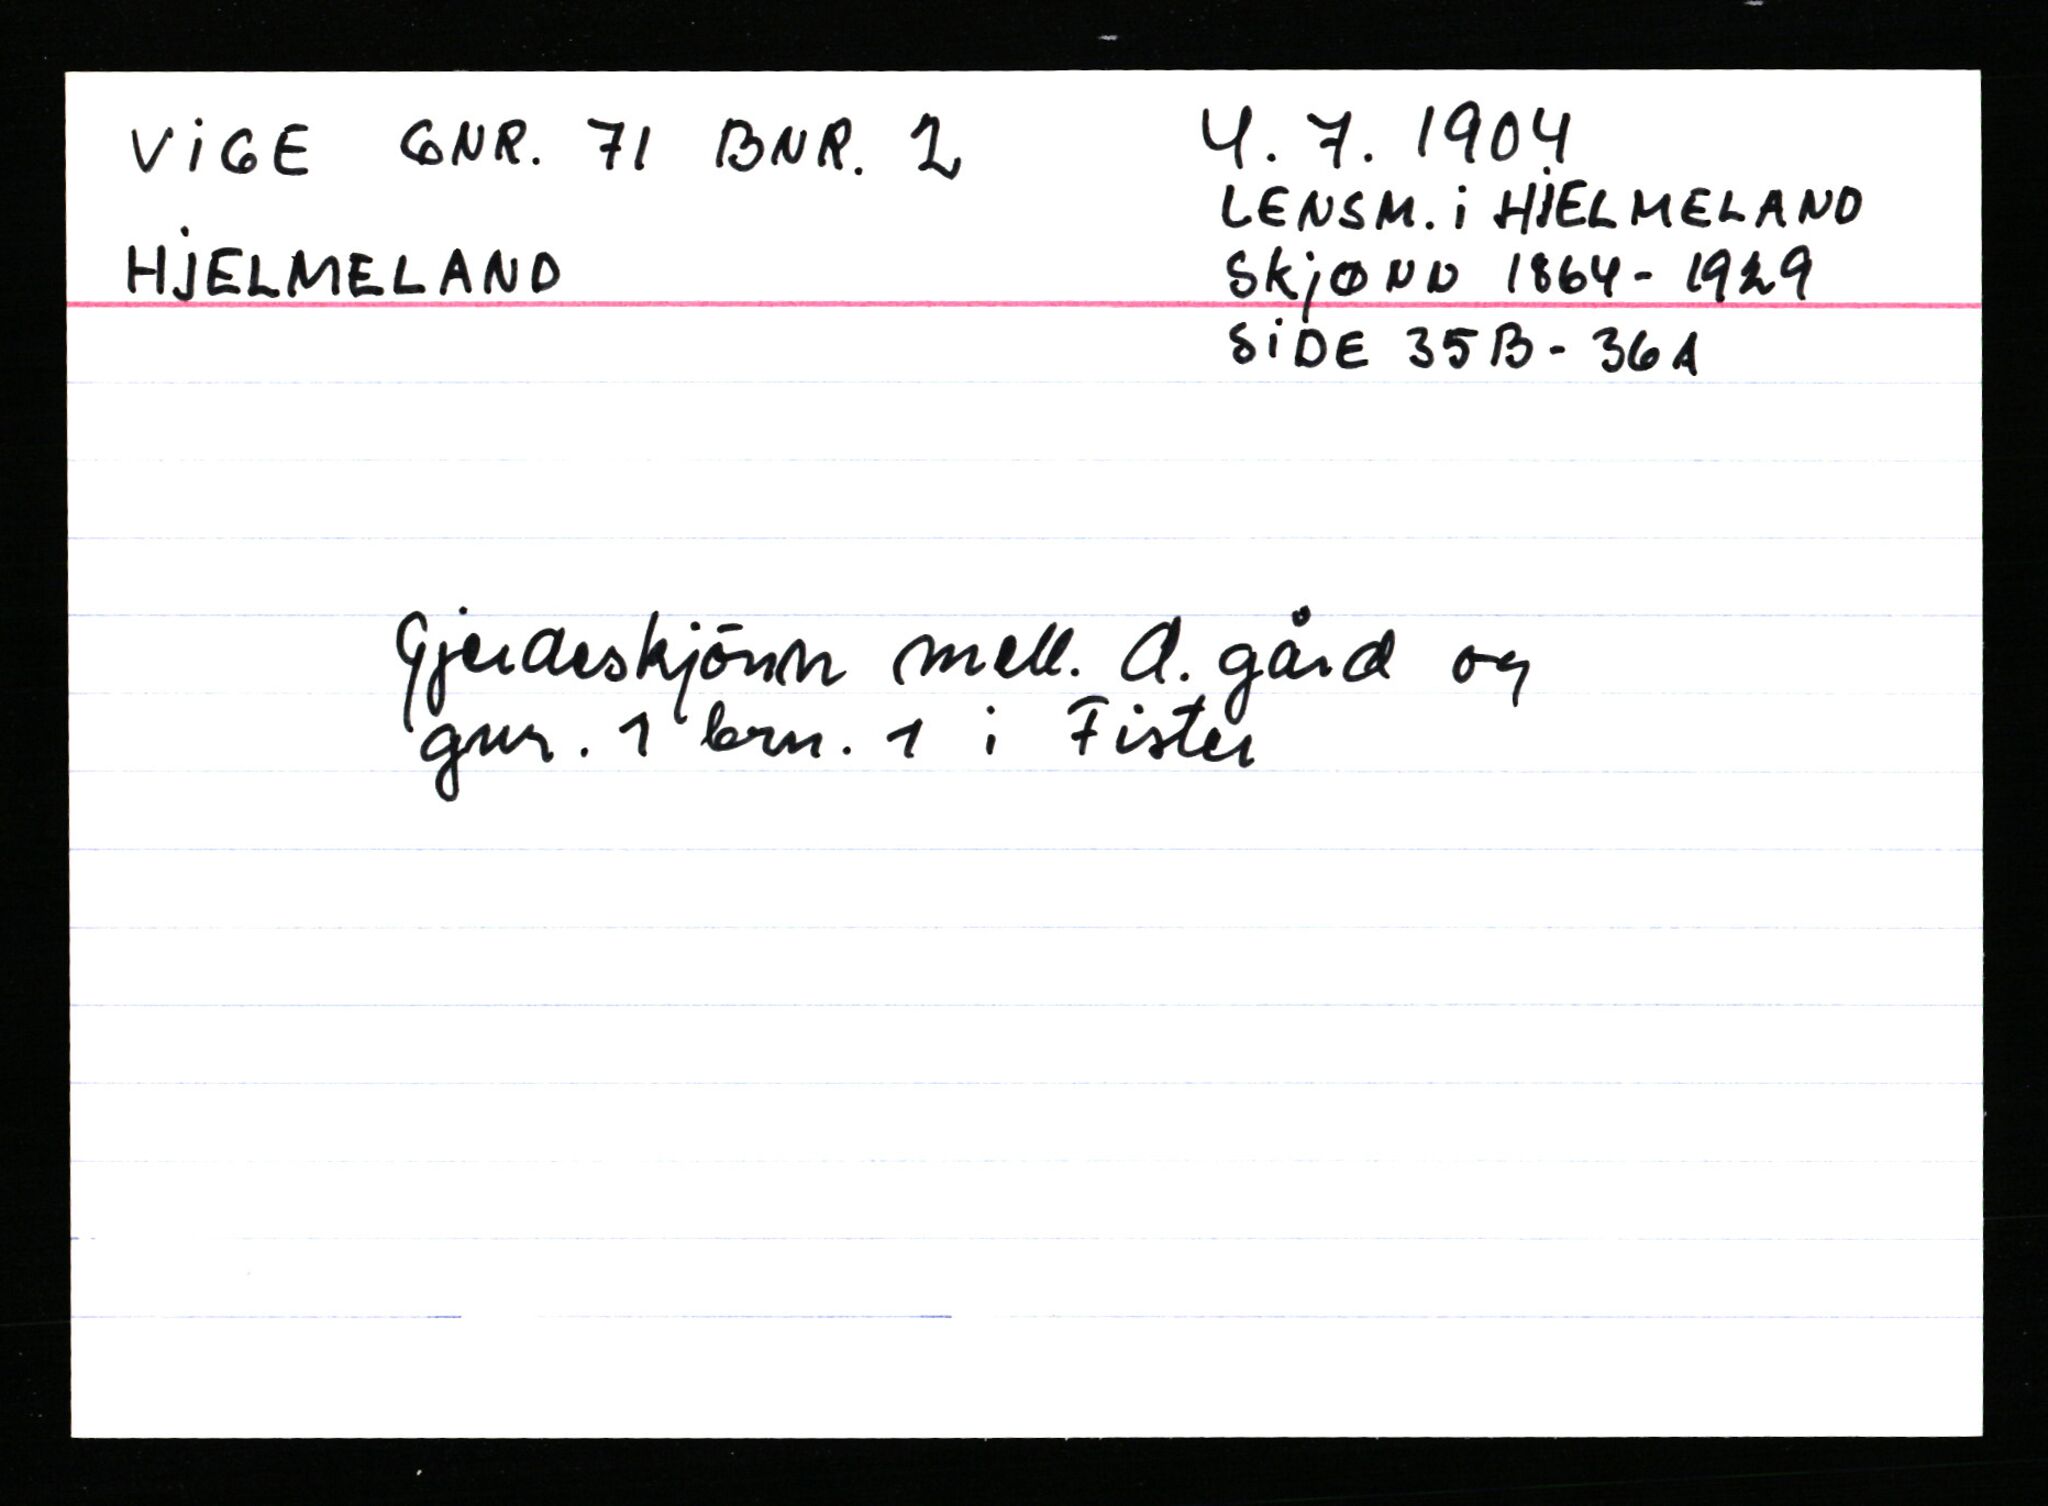 VIGE GNR. 71 BNR. 2
HJELMELAND
4. 7. 1904
LENSM. i HJELMELAND
SKJØNN 1864 - 1929
SIDE 35B - 36A
Gjerdeskjönn mell. d. gård og
gnr. 1 brn. 1 i Fister